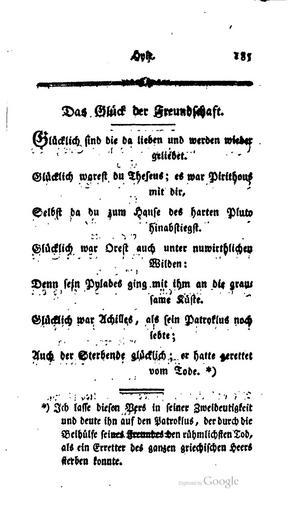 Hylt. 185
Das Glück der Freundschaft.
Glücklich sind die da lieben und werden wieder
geliebet.
Glücklich warest du Theseus; es war Pirithous
mit dir,
Selbst da du zum Hause des harten Pluto
hinabstiegst.
Glücklich war Orest auch unter unwirthlichen
Wilden:
Denn sein Pylades ging mit ihm an die grau-
same Küste.
Glücklich war Achilles, als sein Patroklus noch
lebte;
Auch der Sterbende glücklich; er hatte gerettet
vom Tode. *)
*) Ich lasse diesen Vers in seiner Zweideutigkeit
und deute ihn auf den Patroklus, der durch die
Beihülfe seines Freundes den rühmlichsten Tod,
als ein Erretter des ganzen griechischen Heers
sterben konnte.
Digitized by Google